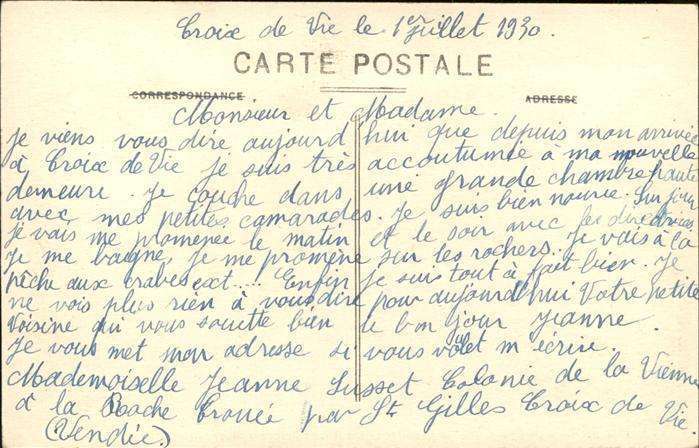 Croix de Vie le 1er juillet 1930.
CARTE POSTALE
CORRESPONDANCE ADRESSE
Monsieur et Madame.
je viens vous dire aujourd'hui que depuis mon arrivée
à Croix de Vie je suis très accoutumée à ma nouvelle
demeure. Je couche dans une grande chambre haute
avec mes petites camarades. Je suis bien nourie. Sur
je vais me promener le matin et le soir avec les directrices
Je me baigne, je me promène sur les rochers. Je vais à la
pêche aux crabes ext..... Enfin je suis tout à fait bien. Je
ne vois plus rien à vous dire pour aujourd'hui Votre petite
Voisine qui vous souette bien le bon jour Jeanne.
Je vous met mon adresse si vous voulet m'écrire.
Mademoiselle Jeanne Susset Colonie de la Vienne
à la Roche Trouée par St Gilles Croix de Vie
(Vendée)